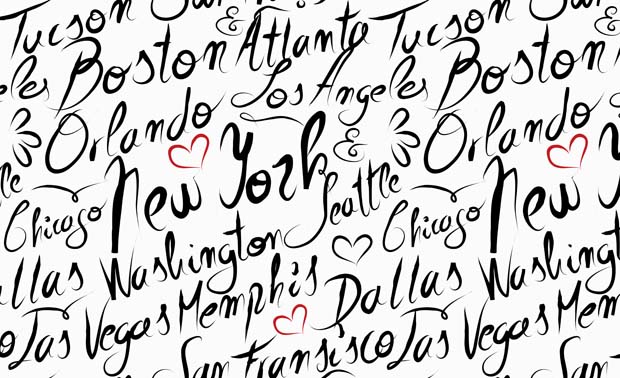 Tucson San & Tucson San &
eles Boston Atlanta Boston
Los Angeles
Orlando Orlando
New York & New Y
le Chicago Seattle Chicago
allas Washington Dallas Washington
o Las Vegas Memphis Las Vegas Mem
San Fransisco San